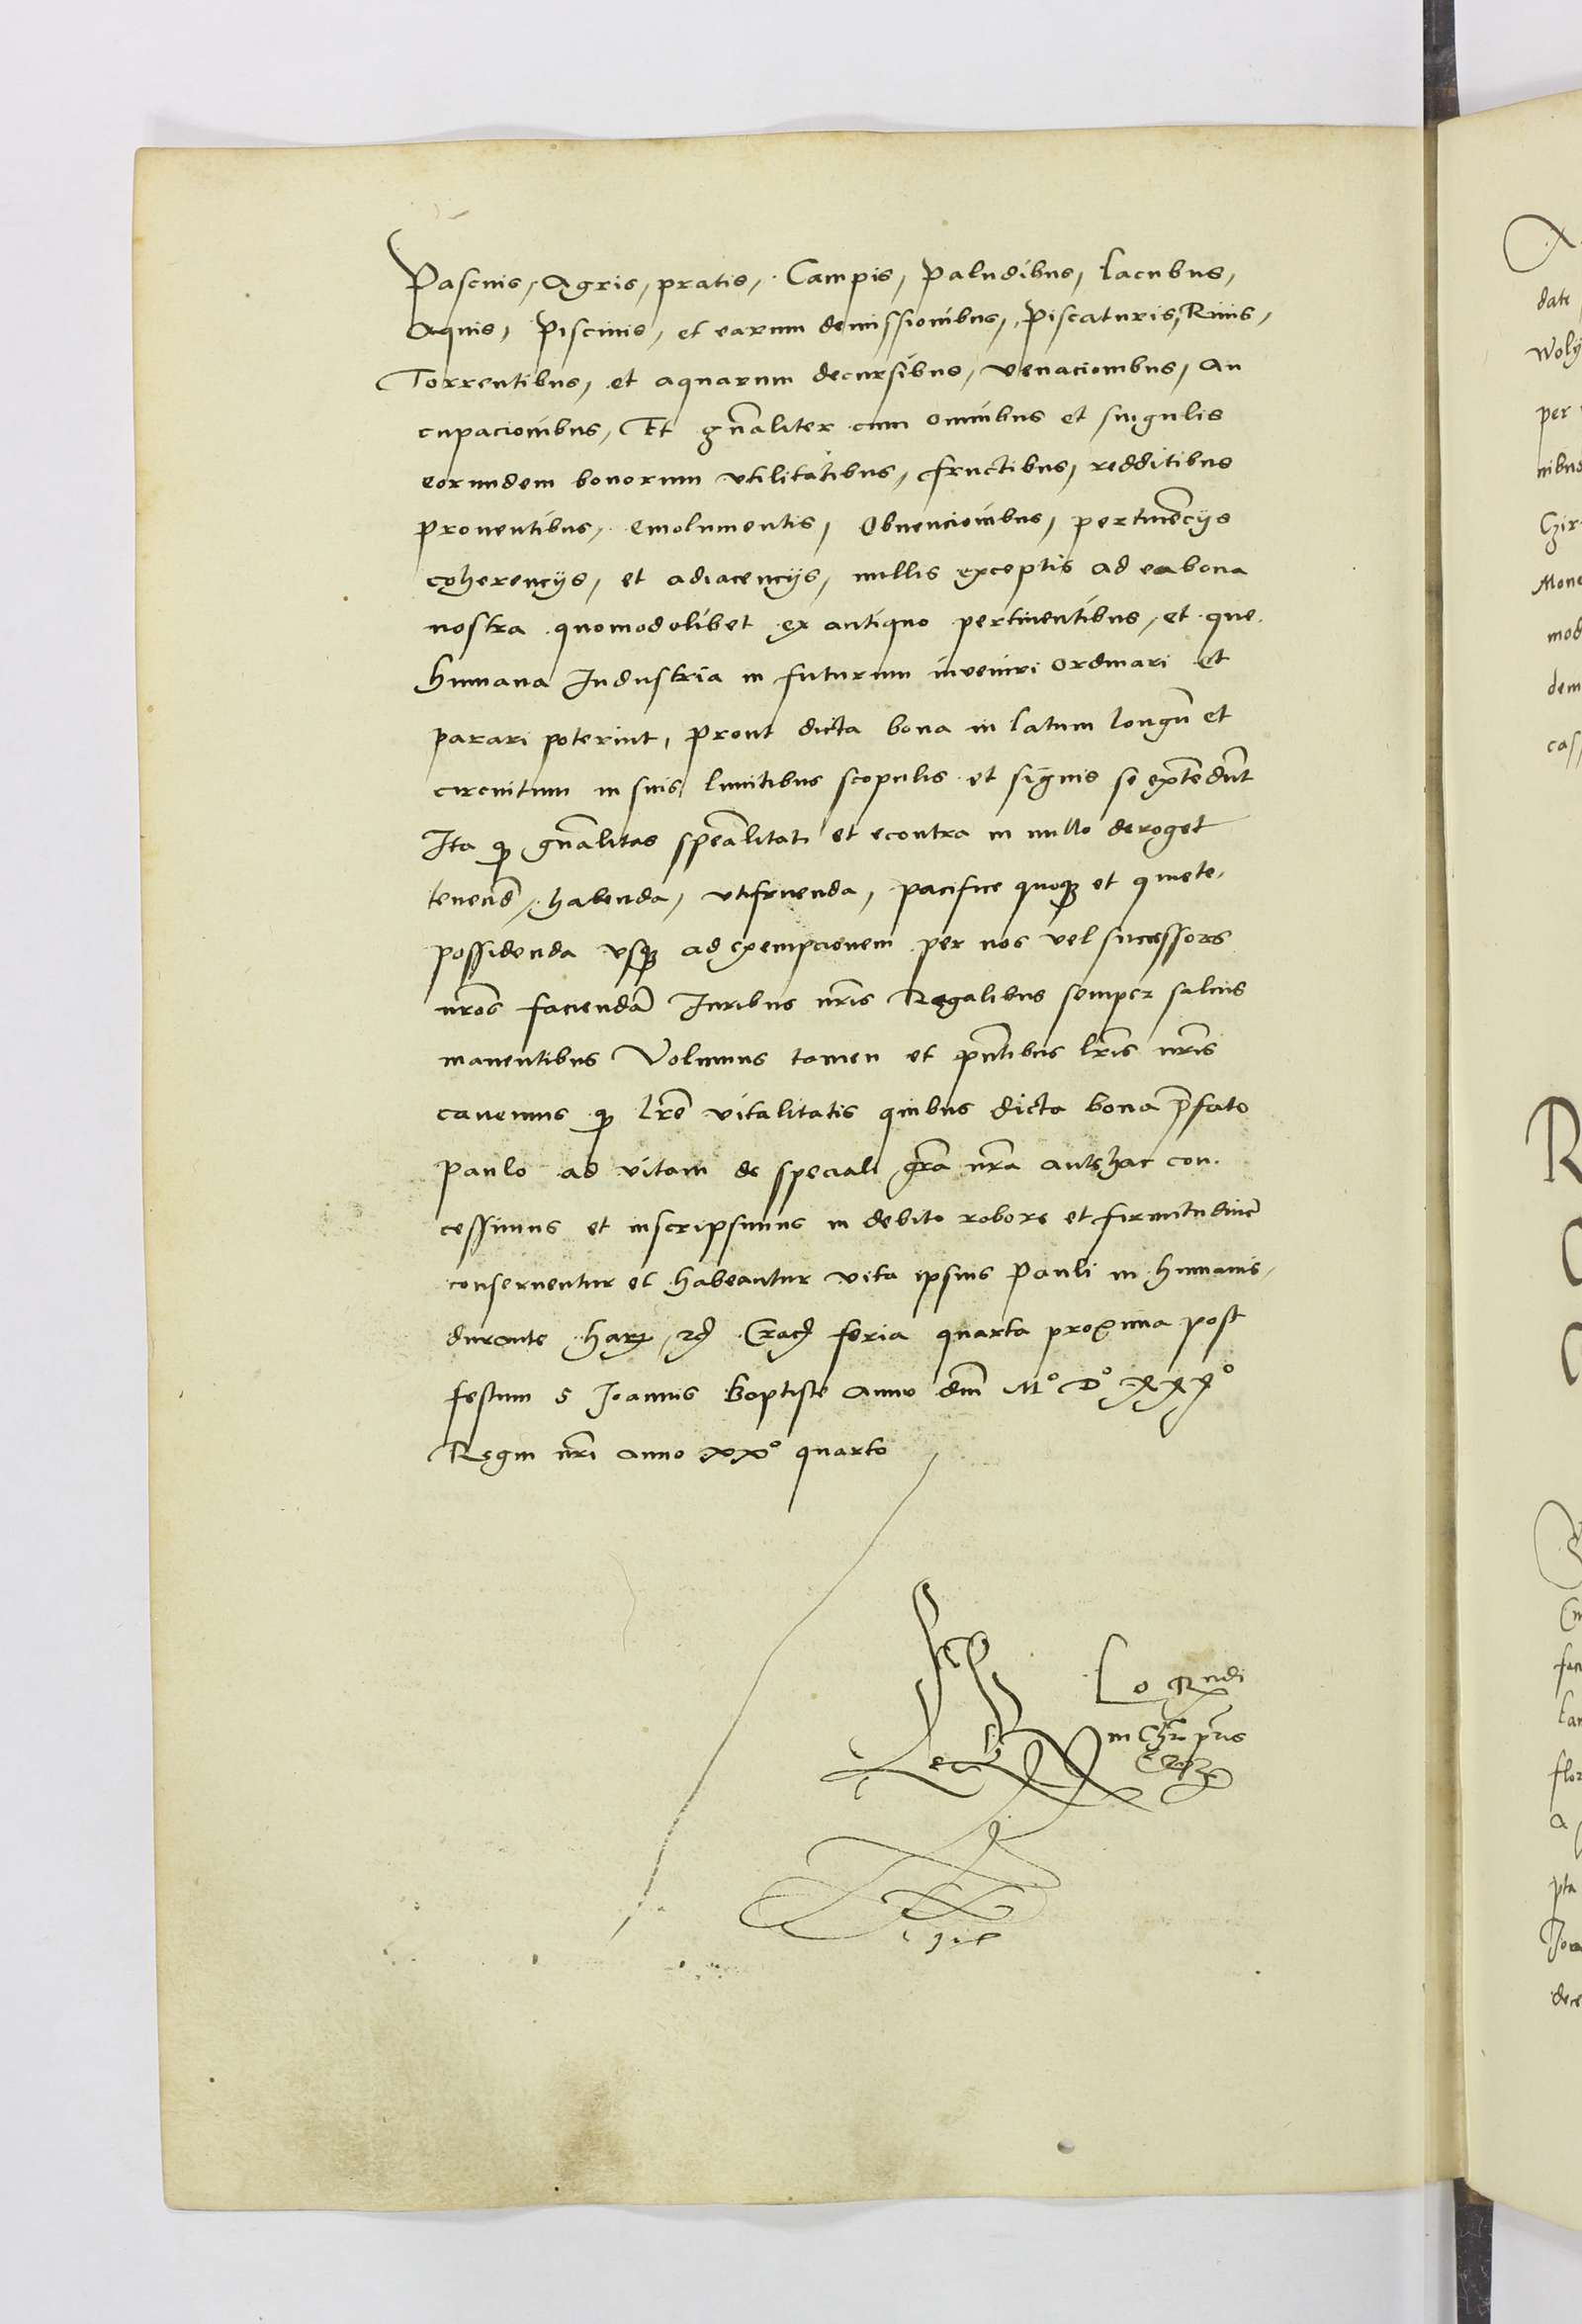 Pascuis, Agris, pratis, Campis, Paludibus, Lacubus,
Aquis, Piscinis, et earum demissionibus, Piscaturis, Riuis,
Torrentibus, et aquarum decursibus, venacionibus, Au
cupacionibus, Et gnãliter cum omnibus et singulis
eorundem bonorum vtilitatibus, fructibus, redditibus
prouentibus, emolumentis, Obuencionibus, pertinẽcijs
coherencijs, et adiacencijs, nullis exceptis ad ea bona
nostra quomodolibet ex antiquo pertinentibus, et que
humana Industria in futurum inveniri ordinari et
parari poterint, prout dicta bona in latum longũ et
circuitum in suis limitibus scopulis et signis se extẽdũt
Ita ꝙ gnãlitas speãlitati et econtra in nullo deroget
tenend, habenda, vtifruenda, pacifice quoqꝫ et quiete
possidenda vsqꝫ ad exempcionem per nos vel successors
nrõs faciendã Iuribus nrĩs Regalibus semper saluis
manentibus Volumus tamen et pñtibus lrĩs nrĩs
cauemus ꝙ lrẽ vitalitatis quibus dicta bona p̃fato
Paulo ad vitam de speciali grã nrã antehac con
cessimus et inscripsimus in debito robore et firmitudine
conseruentur et habeantur vita ipsius Pauli in humanis
durante harꝫ Crac feria quarta proxima post
festum S Joannis Baptiste Anno dnĩ M° D° XXX°
Regni nrĩ anno XX° quarto
date
Woly
per
nibus
Mone
mod
dem
R
pta